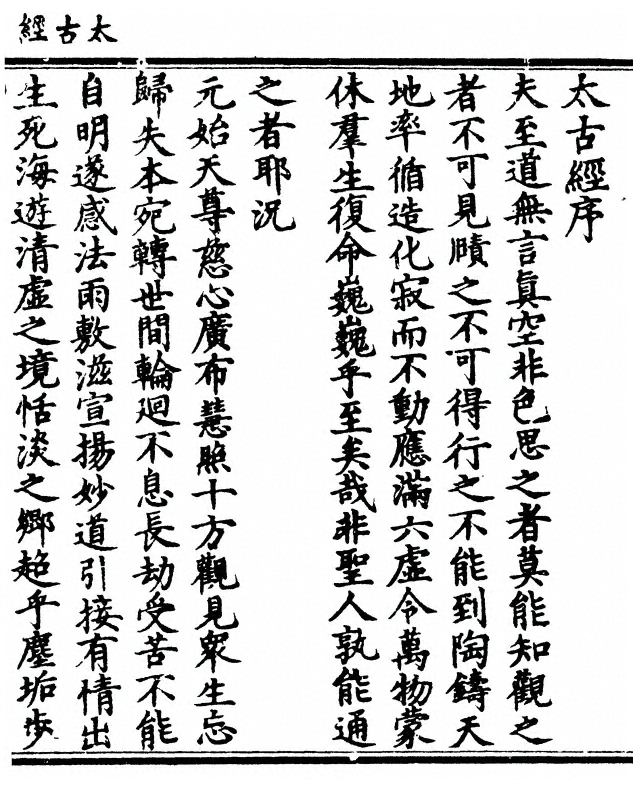 太古經
太古經序
夫至道無言眞空非色思之者莫能知觀之
者不可見賾之不可得行之不能到陶鑄天
地率循造化寂而不動應滿六虛令萬物蒙
休羣生復命巍巍乎至矣哉非聖人孰能通
之者耶況
元始天尊慈心廣布慧照十方觀見衆生忘
歸失本宛轉世間輪廻不息長劫受苦不能
自明遂感法雨敷滋宣揚妙道引接有情出
生死海遊清虛之境恬淡之鄉超乎塵垢步